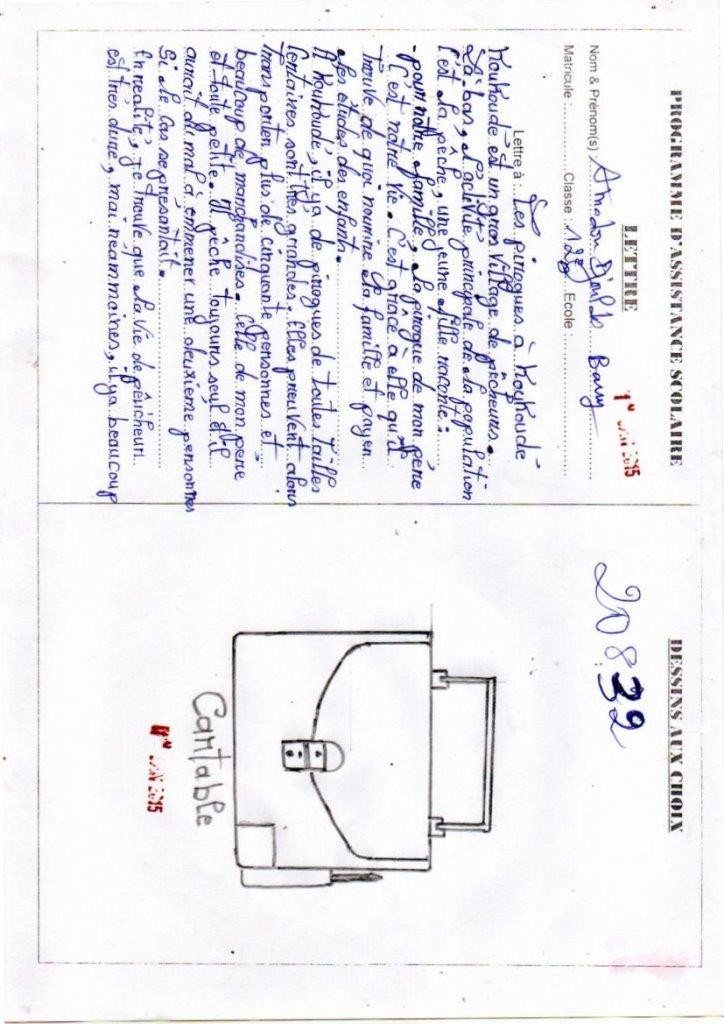 PROGRAMME D'ASSISTANCE SCOLAIRE
LETTRE
1er JAN 2015
Nom & Prénom(s) : Amadou Djouldé Barry
Matricule : Classe : Ecole :
Lettre à : Les pirogues à Kouhoudé
Kouhoudé est un gros village de pêcheurs.
Là bas, l'activité principale de la population
c'est la pêche, une jeune fille raconte :
- pour notre famille, la pirogue de mon pere
c'est notre vie. c'est grâce à elle qu'il
trouve de quoi nourrire la famille et payer
les études des enfants.
A Kouhoudé, il ya de pirogues de toutes tailles
Certaines, sont très grandes. Elles preuvent alors
transporter plus de cinquante personnes et
beaucoup de marchandises. Celle de mon pere
et toute petite. Il pêche toujours seul et il
aurait du mal à emmener une deuxième personnes
Si le cas se presantait.
En realité, je trouve que la vie de pêicheur
est très dure, mai neammoines, il ya beaucoup
DESSINS AUX CHOIX
20832
Cartable
JAN 2015